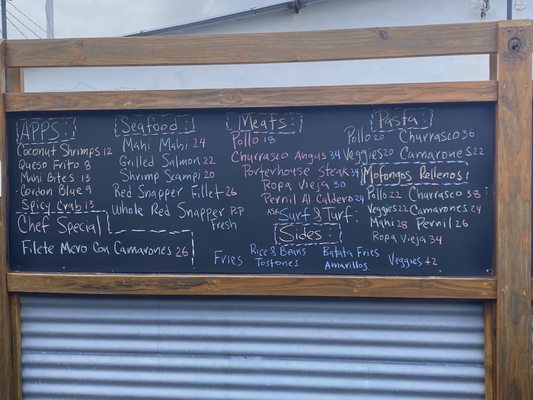 APPS:
Coconut Shrimps 12
Queso Frito 8
Mahi Bites 13
Cordon Blue 9
Spicy Crab 13
Chef Special
Filete Mero Con Camarones 26
Seafood:
Mahi Mahi 24
Grilled Salmon 22
Shrimp Scampi 20
Red Snapper Fillet 26
Whole Red Snapper P.P
Fresh
Meats:
Pollo 18
Churrasco Angus 34
Porterhouse Steak 34
Ropa Vieja 30
Pernil Al Caldero 24
ASK Surf & Turf
Sides:
Fries
Rice & Beans
Tostones
Batata Fries
Amarillos
Veggies +2
Pasta
Pollo 20 Churrasco 36
Veggies 20 Camarones 22
Mofongos Rellenos
Pollo 22 Churrasco 38
Veggies 22 Camarones 24
Mahi 28 Pernil 26
Ropa Vieja 34